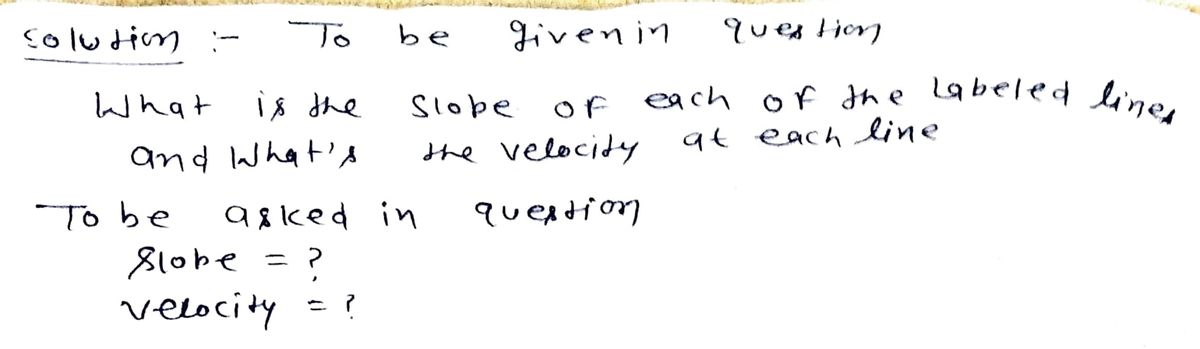 Solution :- To be given in question
What is the Slobe of each of the Labeled lines
and What's the velocity at each line
To be asked in question
Slobe = ?
velocity = ?